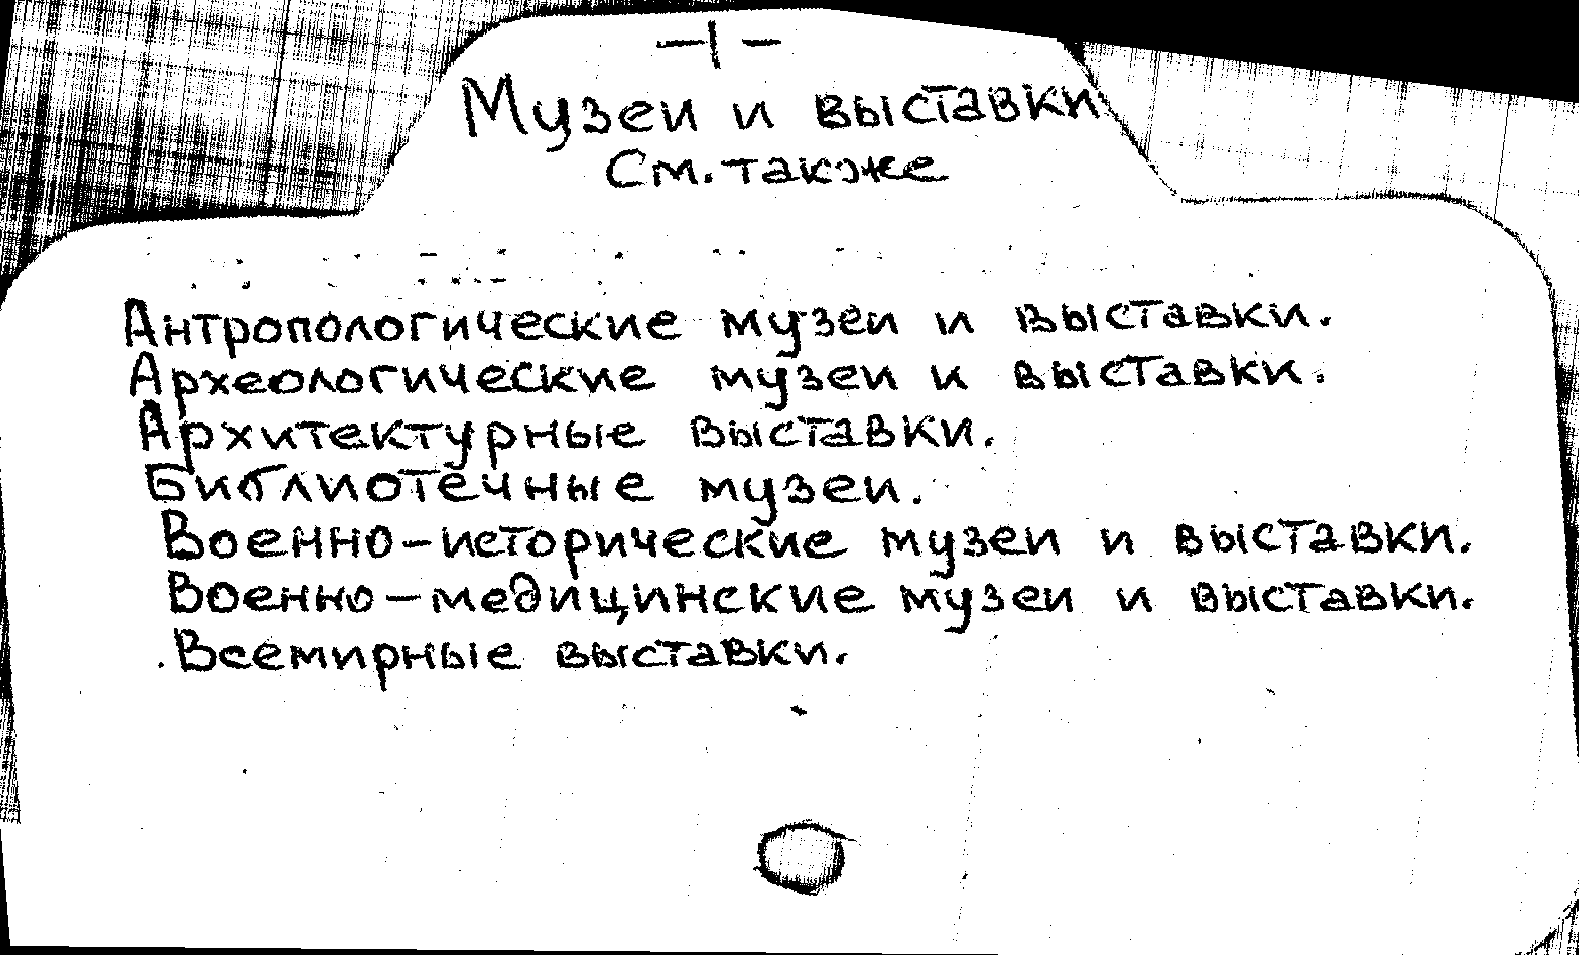 -1-
Музеи и выставки
См. также
Антропологические музеи и выставки.
Археологические музеи и выставки.
Архитектурные выставки.
Библиотечные музеи.
Военно-исторические музеи и выставки.
Военно-медицинские музеи и выставки.
Всемирные выставки.